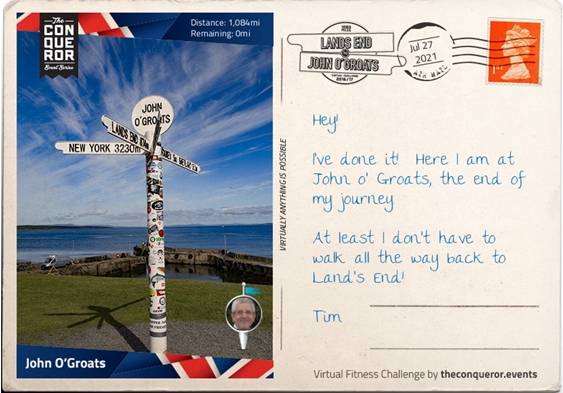 The
CONQUEROR
Event Series
Distance: 1,084mi
Remaining: 0mi
JOHN
O'GROATS
LANDS END
NEW YORK 3230mi
John O'Groats
VIRTUALLY ANYTHING IS POSSIBLE
LANDS END
TO
JOHN O'GROATS
VIRTUAL CHALLENGE
Jul 27
2021
AIR MAIL
1st
Hey!
I've done it! Here I am at
John o' Groats, the end of
my journey
At least I don't have to
walk all the way back to
Land's End!
Tim
Virtual Fitness Challenge by theconqueror.events